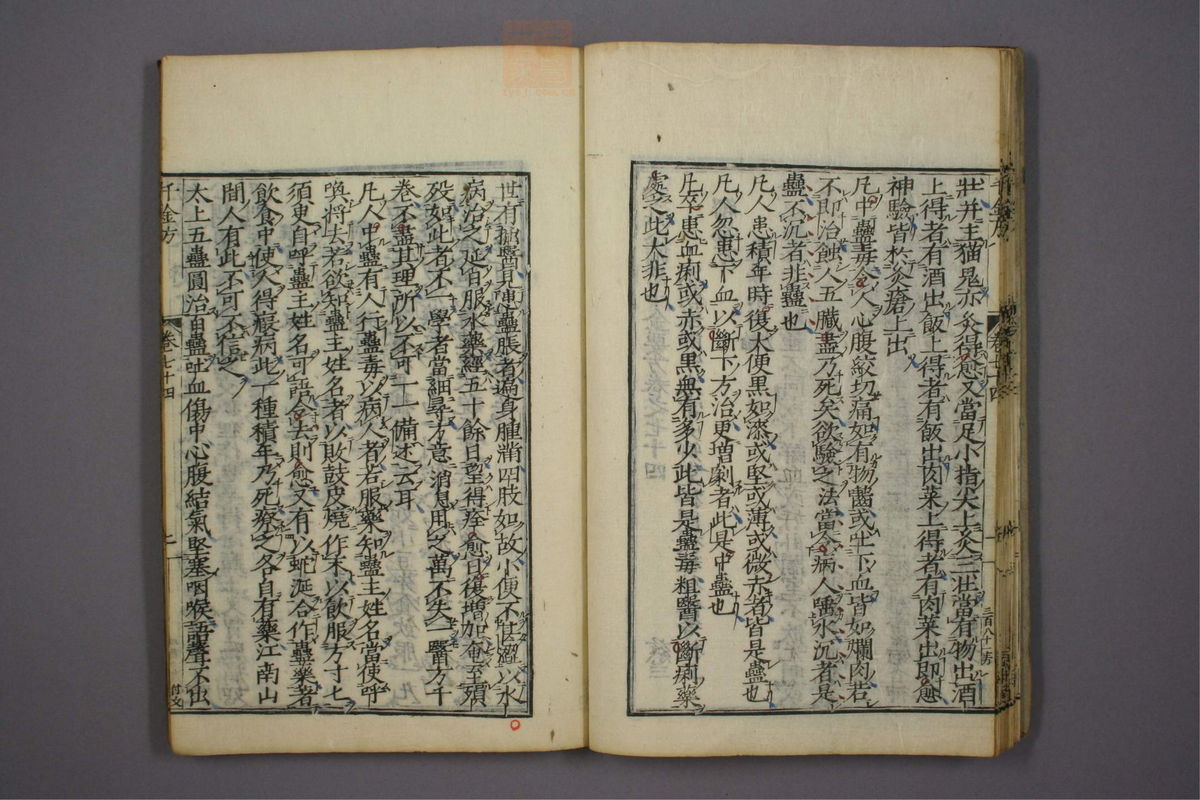 壯并主猫鬼亦灸得愈又當足小指尖上灸三壯當有物出酒
上得者有酒出飯上得者有飯出肉菜上得者有肉菜出即愈
神驗皆於灸瘡上出
凡中蠱毒令人心腹絞切痛如有物齧或吐下血皆如爛肉若
不即治蝕人五臟盡乃死矣欲驗之法當令病人唾水沉者是
蠱不沉者非蠱也
凡人患積年時復大便黑如漆或堅或薄或微赤者皆是蠱也
凡人忽患下血以斷下方治更增劇者此是中蠱也
凡卒患血痢或赤或黑無有多少此皆是蠱毒粗醫以斷痢藥
處之此大非也
世有拙醫見患蠱脹者遍身腫滿四肢如故小便不甚澀以水
病治之延日服水藥經五十餘日望得痊愈日復增加奄至殞
歿如此者不一學者當細尋方意消息用之萬不失一醫方千
卷不盡其理所以不可一一備述云耳
凡人中蠱有人行蠱毒以病人者若服藥知蠱主姓名當使呼
喚將去若欲知蠱主姓名者以敗鼓皮燒作末以飲服方寸匕
須臾自呼蠱主姓名可語令去則愈又有以蛇涎合作蠱藥著
飲食中使人得瘕病此一種積年乃死療之各自有藥江南山
間人有此不可不信之
太上五蠱圓治百蠱吐血傷中心腹結氣堅塞咽喉語聲不出
千金方
卷七十四